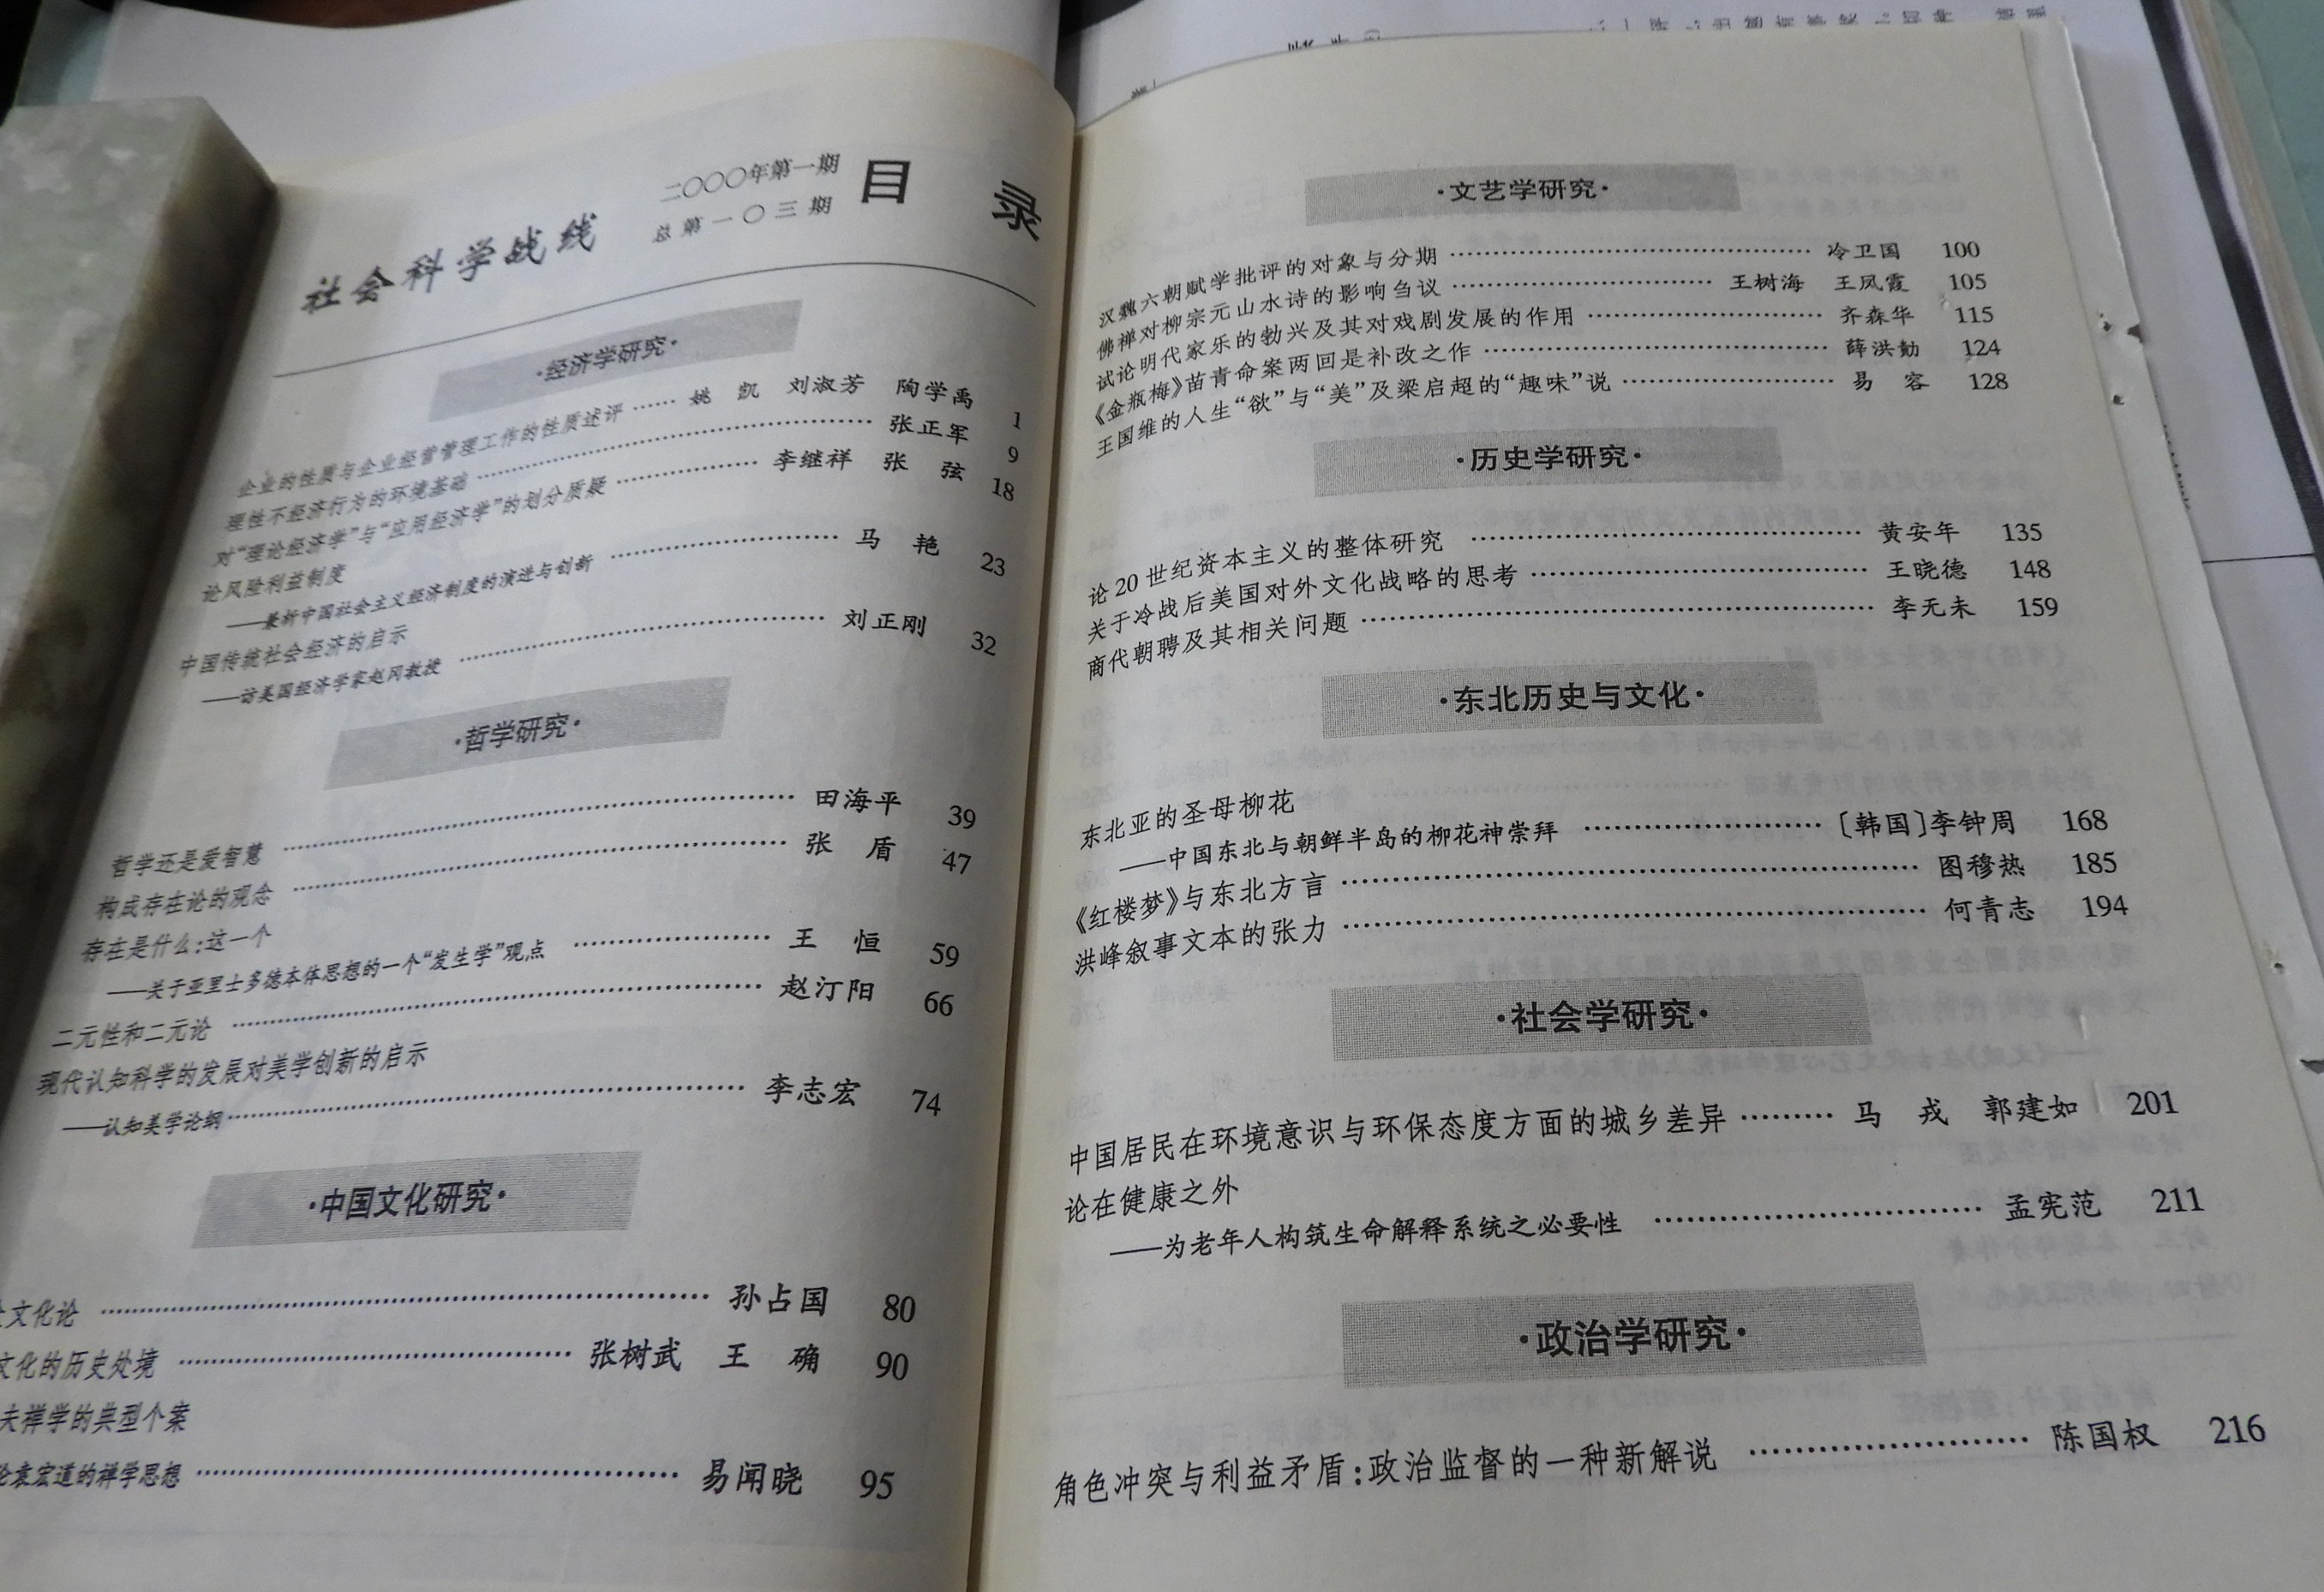 社会科学战线
二〇〇〇年第一期
总第一〇三期
目 录
·经济学研究·
企业的性质与企业经营管理工作的性质述评 …… 姚 凯 刘淑芳 陶学禹 1
理性不经济行为的环境基础 …… 张正军 9
对“理论经济学”与“应用经济学”的划分质疑 …… 李继祥 张 弦 18
论风险利益制度
——兼析中国社会主义经济制度的演进与创新 …… 马 艳 23
中国传统社会经济的启示
——访美国经济学家赵冈教授 …… 刘正刚 32
·哲学研究·
哲学还是爱智慧 …… 田海平 39
构成存在论的观念 …… 张 盾 47
存在是什么:这一个
——关于亚里士多德本体思想的一个“发生学”观点 …… 王 恒 59
二元性和二元论 …… 赵汀阳 66
现代认知科学的发展对美学创新的启示
——认知美学论纲 …… 李志宏 74
·中国文化研究·
文化论 …… 孙占国 80
文化的历史处境 …… 张树武 王 确 90
夫禅学的典型个案
论袁宏道的禅学思想 …… 易闻晓 95
·文艺学研究·
汉魏六朝赋学批评的对象与分期 …… 冷卫国 100
佛禅对柳宗元山水诗的影响刍议 …… 王树海 王凤霞 105
试论明代家乐的勃兴及其对戏剧发展的作用 …… 齐森华 115
《金瓶梅》苗青命案两回是补改之作 …… 薛洪勣 124
王国维的人生“欲”与“美”及梁启超的“趣味”说 …… 易 容 128
·历史学研究·
论20世纪资本主义的整体研究 …… 黄安年 135
关于冷战后美国对外文化战略的思考 …… 王晓德 148
商代朝聘及其相关问题 …… 李无未 159
·东北历史与文化·
东北亚的圣母柳花
——中国东北与朝鲜半岛的柳花神崇拜 …… 〔韩国〕李钟周 168
《红楼梦》与东北方言 …… 图穆热 185
洪峰叙事文本的张力 …… 何青志 194
·社会学研究·
中国居民在环境意识与环保态度方面的城乡差异 …… 马 戎 郭建如 201
论在健康之外
——为老年人构筑生命解释系统之必要性 …… 孟宪范 211
·政治学研究·
角色冲突与利益矛盾:政治监督的一种新解说 …… 陈国权 216